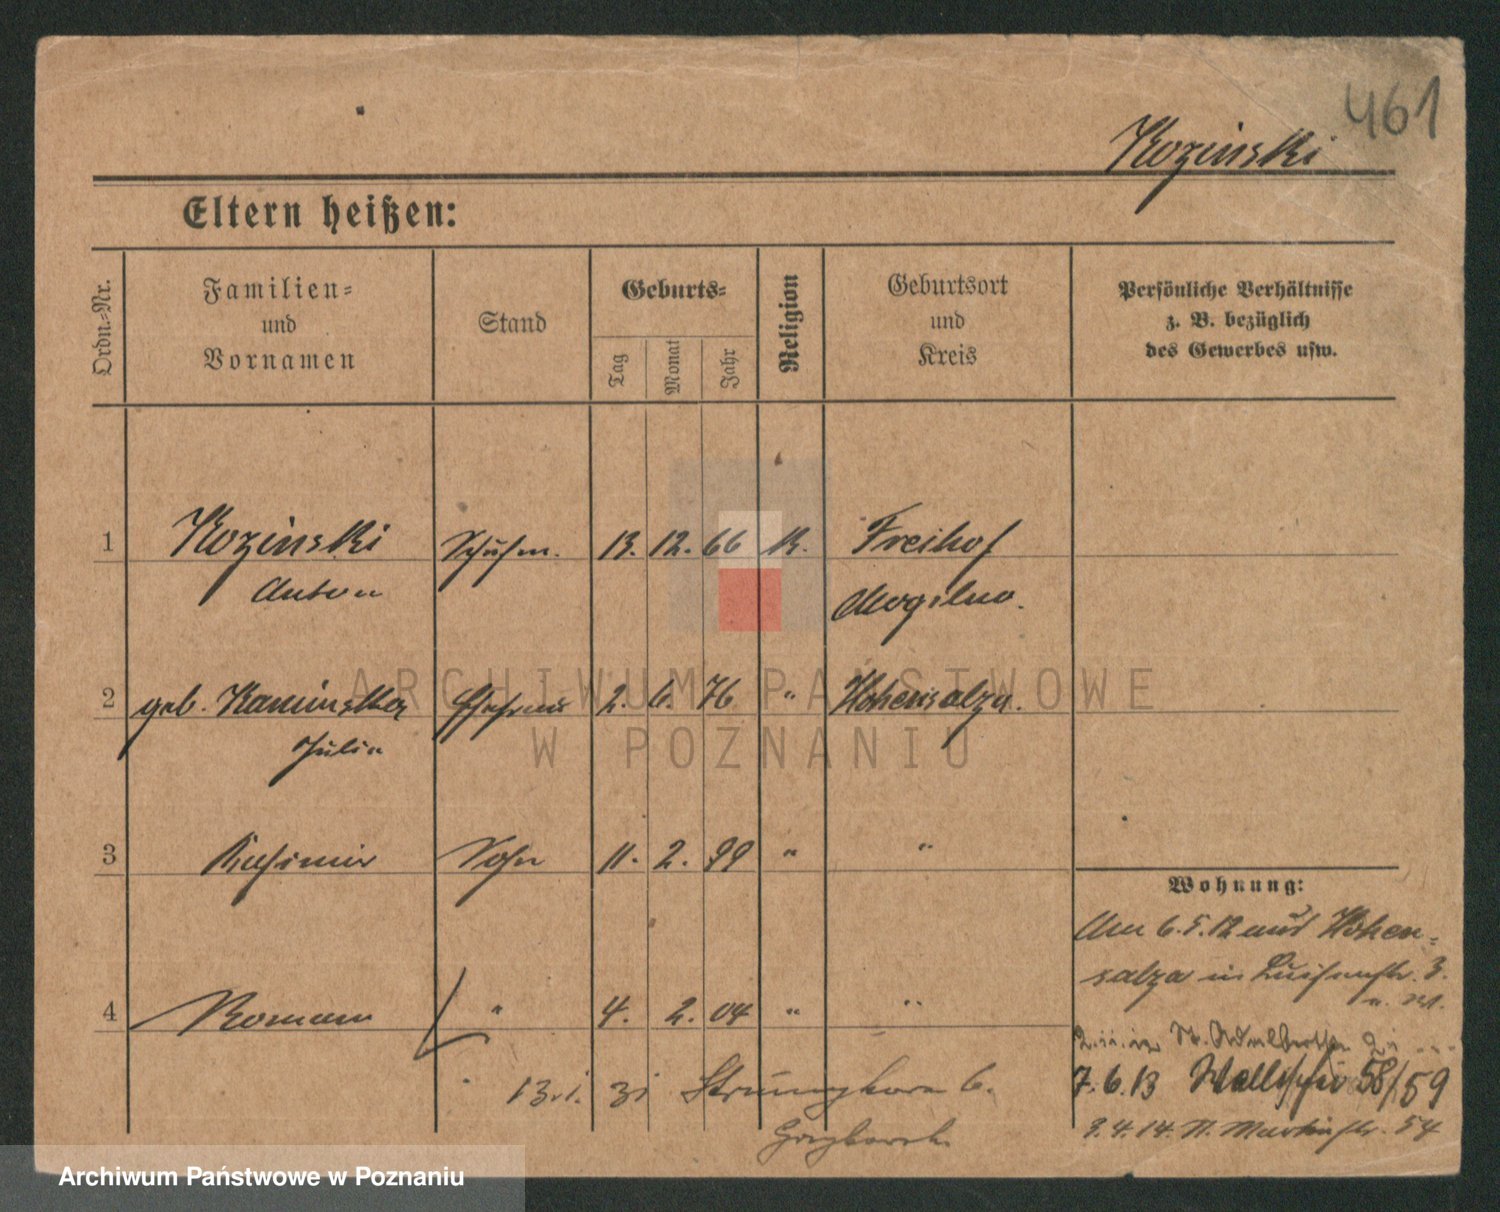 461
Kozinski
Eltern heißen:
Ordn.-Nr.
Familien-
und
Vornamen
Stand
Geburts-
Tag
Monat
Jahr
Religion
Geburtsort
und
Kreis
Persönliche Verhältnisse
z. B. bezüglich
des Gewerbes usw.
1 Kozinski Schuhm. 13. 12. 66 K. Freihof
Anton Mogilno.
2 geb. Kaminska Ehefrau 2. 6. 76 " Hohensalza.
Julia
3 Kasimir Sohn 11. 2. 99 " "
Wohnung:
Am 6.5.12 aus Hohen-
salza in Luisenstr. 3.
4 Roman " 4. 2. 04 " "
St. Adalbertstr. 2
13.1. zi 6.
7.6.13 Wallischei 58/59
3.4.14. St. Martinstr. 54
ARCHIWUM PAŃSTWOWE
W POZNANIU
Archiwum Państwowe w Poznaniu